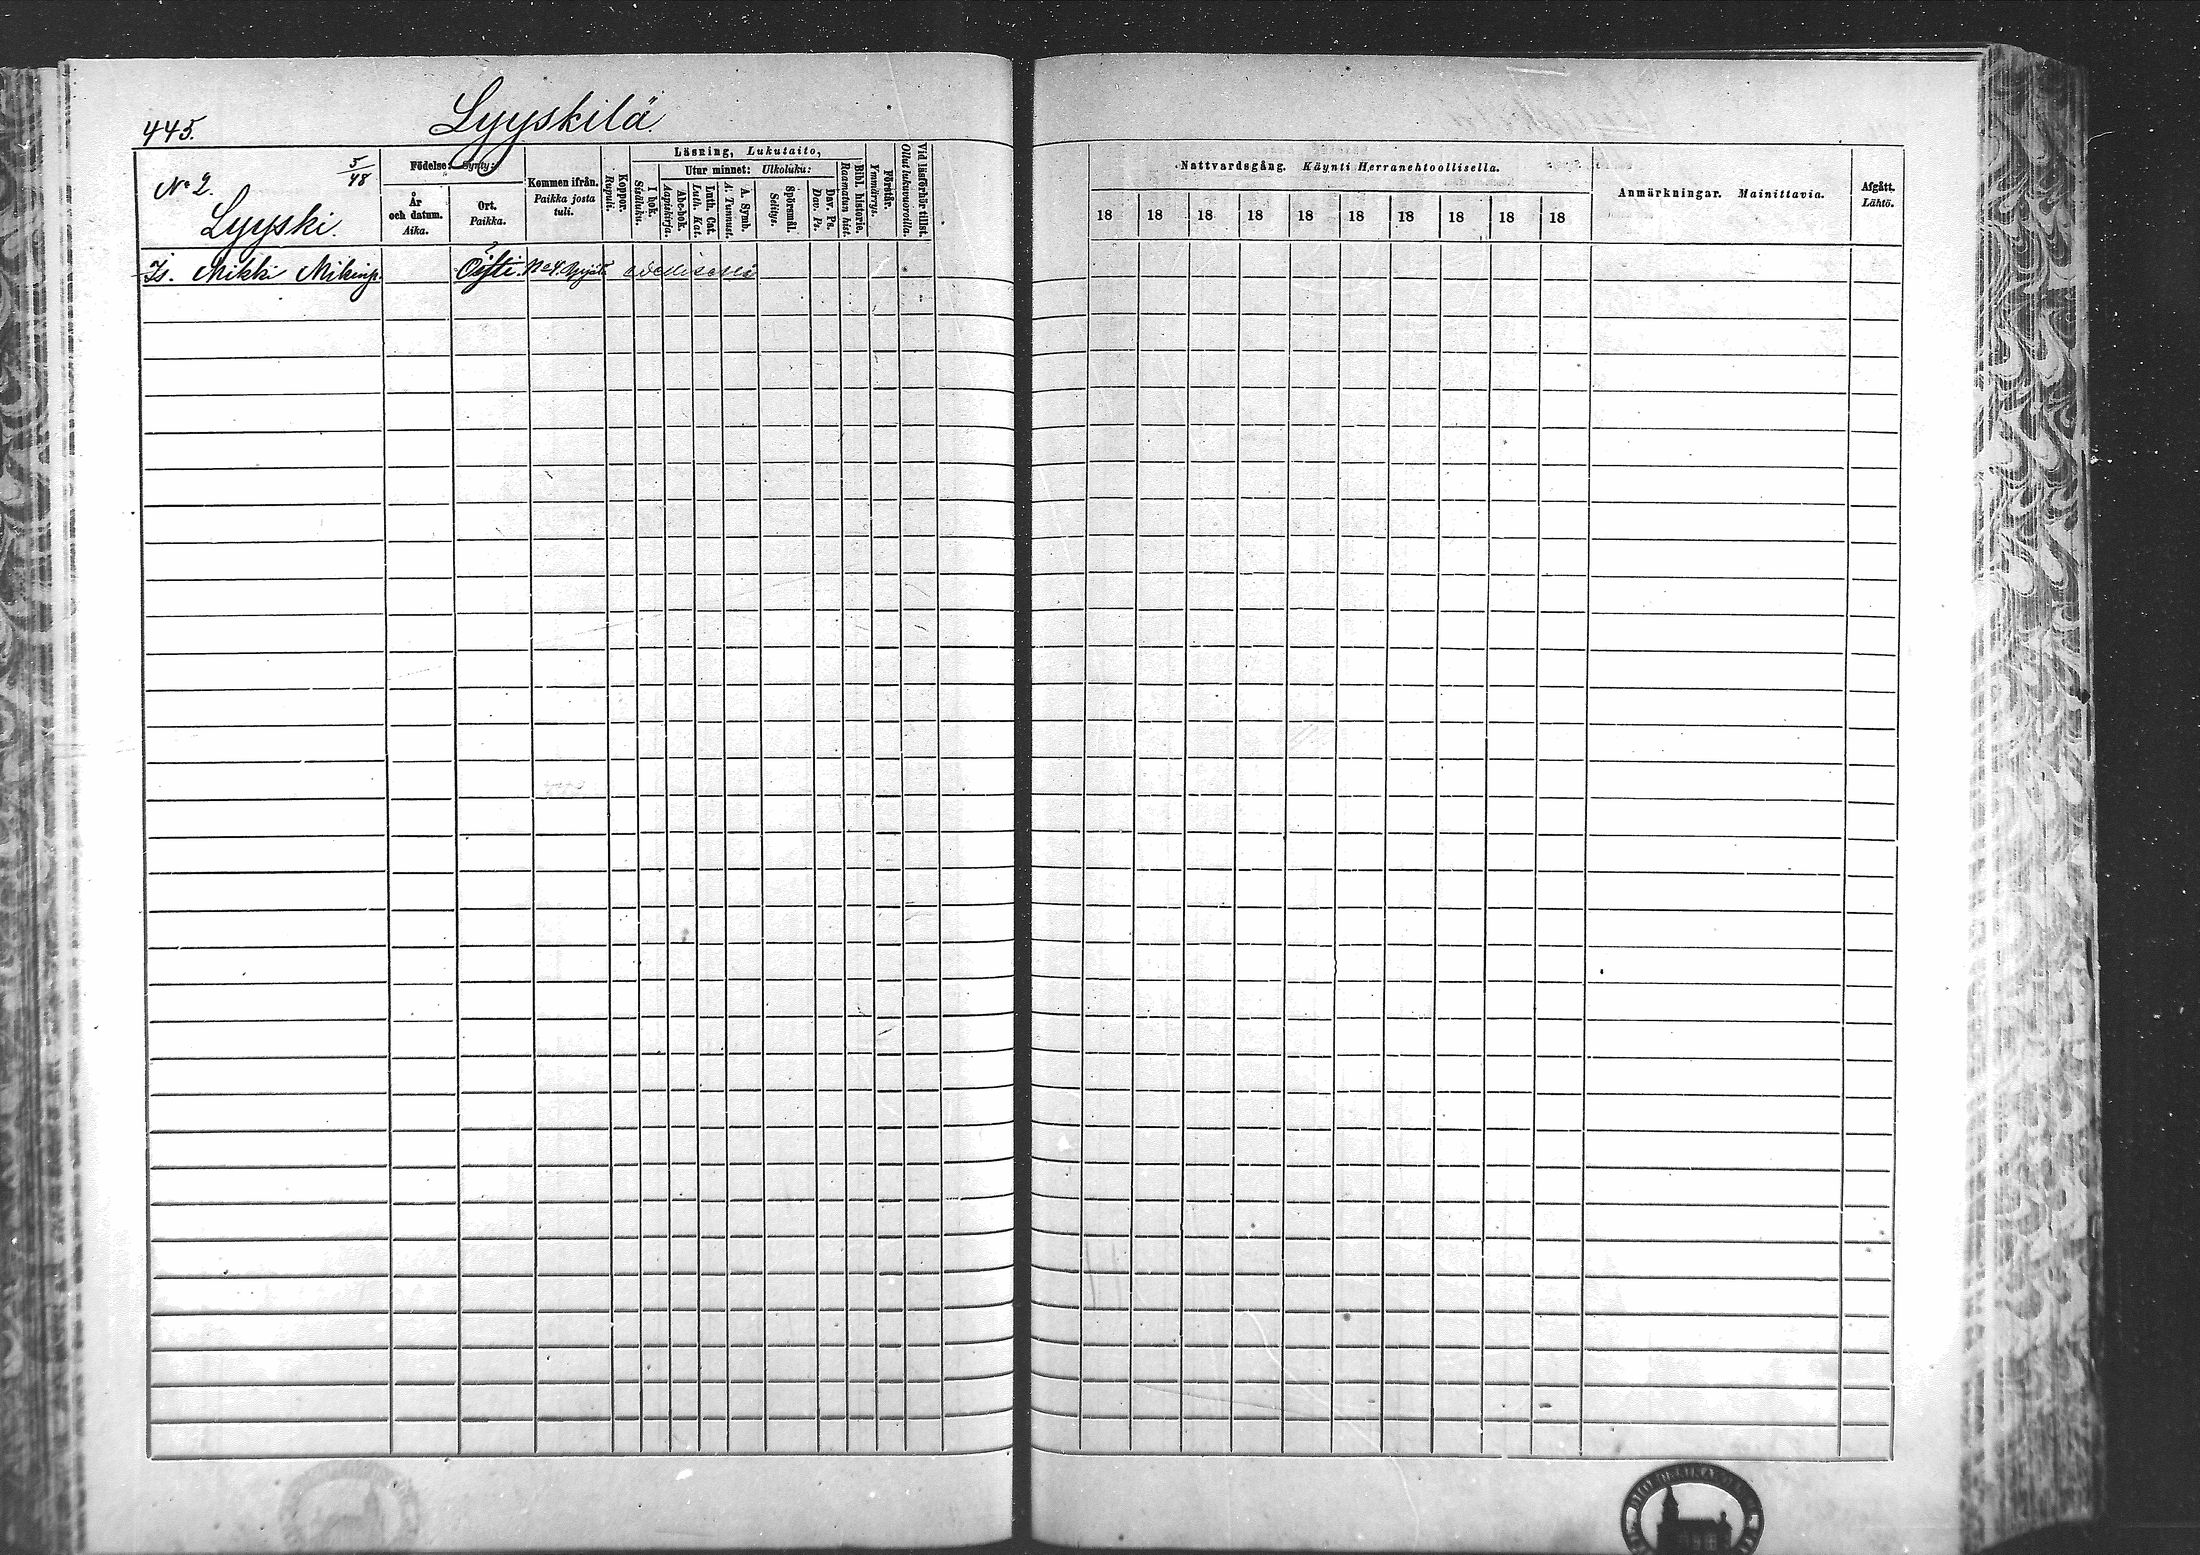 445.
Lyyskilä.
No 2.
5/48
Lyyski.
Födelse: Synty:
År och datum. Aika.
Ort. Paikka.
Kommen ifrån. Paikka josta tuli.
Koppor. Rupuli.
Läsning, Lukutaito,
I bok. Sisäluku.
Utur minnet: Ulkoluku:
Abc-bok. Aapiskirja.
Luth. Cat. Luth. Kat.
A. Symb. A. Tunnust.
Spörsmål. Selitys.
Dav. Ps. Dav. Ps.
Bibl. historie. Raamatun hist.
Förstår. Ymmärrys.
Vid läsförhör tillst. Ollut lukuvuoroilla.
Nattvardsgång. Käynti Herranehtoollisella.
18 18 18 18 18 18 18 18 18 18
Anmärkningar. Mainittavia.
Afgått. Lähtö.
Is. Mikki Mikinp.